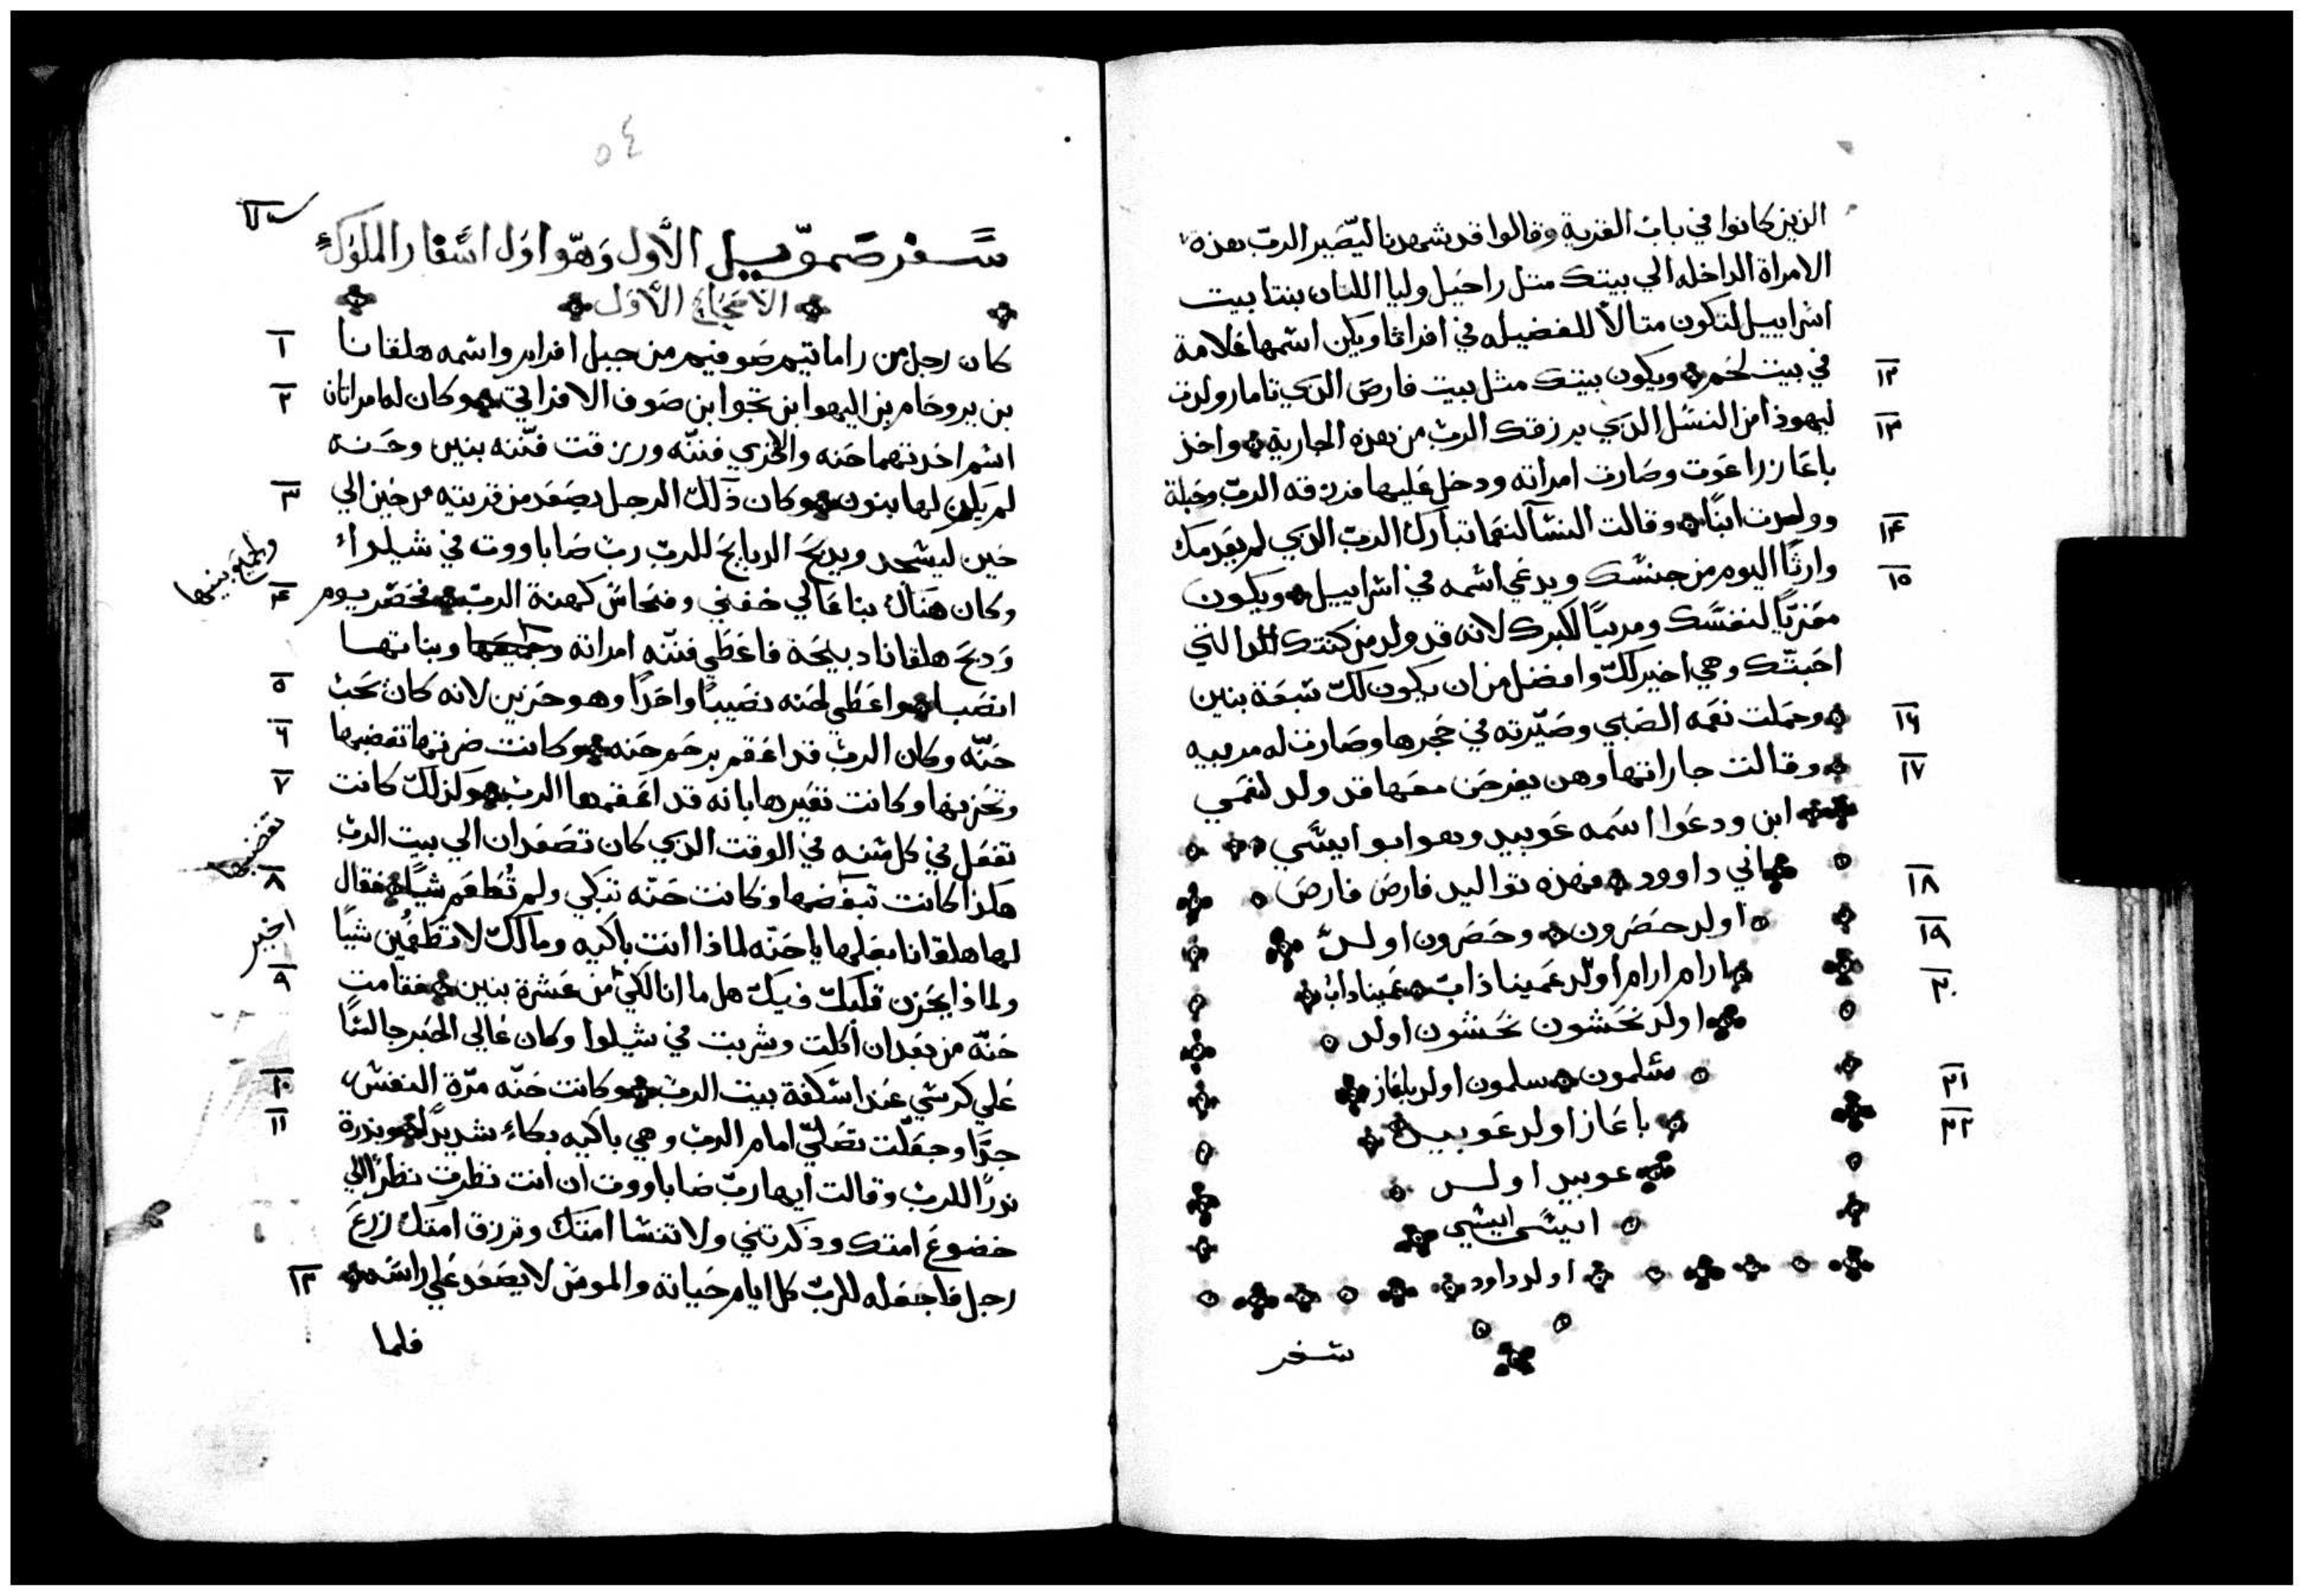 الذين كانوا في باب القرية وقالوا قد شهدنا ليصير الرب هذه
الامراة الداخله الي بيتك متل راحيل وليا اللتان بنتا بيت
اسراييل لتكون متالاً للفضيله في افراثا ويكن اسمها علامة
١٢ في بيت لحم ويكون بيتك مثل بيت فارص الدي تامار ولدت
١٣ ليهوذا من النسل الدي يرزقك الرب من هذه الجارية واخذ
باعاز راعوت وصارت امراته ودخل عليها فرزقه الرب وحبلة
١٤ وولدت ابنًا وقالت النسا لنعما تبارك الرب الدي لم يعدمك
١٥ وارثًا اليوم من جنسك ويدعي اسمه في اسراييل ويكون
معزيًا لنفسك ومربيًا لكبرك لانه قد ولد من كنتك التي
احبتك وهي اخير لك وافضل من ان يكون لك سبعة بنين
١٦ وحملت نعمه الصبي وصيرته في حجرها وصارت له مربيه
١٧ وقالت جاراتها وهن يفرحن معها قد ولد لنعمي
ابن ودعوا اسمه عوبيد وهو ابو ايسي
١٨ ابي داوود فهذه تواليد فارص فارص
١٩ اولد حصرون وحصرون اولد
٢٠ ارام ارام اولد عميناذاب عميناداب
اولد نحشون نحشون اولد
٢١ سلمون سلمون اولد باعاز
٢٢ باعاز اولد عوبيد
عوبيد اولد
ايسي ايسي
اولد داود
سفر
٥٤
سفر صموييل الأول وهو اول اسفار الملوك
الاصحاح الأول
١ كان رجل من راماتيم صوفيم من جبل افرايم واسمه هلقانا
٢ بن يروحام بن اليهوا بن تحوا بن صوف الافراتي وكان له امراتان
اسم احدتهما حنه والاخري فننه ورزقت فننه بنين وحنه
٣ لم يكن لها بنون وكان ذلك الرجل يصعد من قريته من حين الي
حين ليسجد ويدبح الدبايح للرب رب صاباووت في شيلوا
٤ وكان هناك بنا عالي حفني وفنحاس كهنة الرب فحضر يوم
ودبح هلقانا دبيحة فاعطي فننه امراته وبناتها
٥ انصبا واعطي لحنه نصيبًا واحدًا وهو حزين لانه كان يحب
٦ حنّه وكان الرب قد اعقم رحم حنه وكانت ضرتها تغضبها
٧ وتحزنها وكانت تعيرها بانه قد اعقمها الرب وكذلك كانت
تفعل في كل سنه في الوقت الدي كان تصعدان الي بيت الرب
٨ هكذا كانت تبغضها وكانت حنّه تبكي ولم تُطعم شيًا فقال
لها هلقانا بعلها يا حنّه لماذا انت باكيه ومالك لا تطعمين شيًا
٩ ولماذا يحزن قلبك فيك هل ما انا لكي من عشرة بنين فقامت
حنّه من بعد ان اكلت وشربت في شيلوا وكان عالي الحبر جالسًا
١٠ علي كرسي عند اسكفة بيت الرب وكانت حنّه مرّة النفس
١١ جدًا وجعلت تصلي امام الرب وهي باكيه بكاءً شديدًا ونذرة
ندرًا للرب وقالت ايها رب صاباووت ان انت نظرت نظرًا الي
خضوع امتك وذكرتني ولا تنسا امتك وترزق امتك زرع
١٢ رجل فاجعله للرب كل ايام حياته والموس لا يصعد علي راسه
فلما
وجميع بنيها
تغضبها
اخير